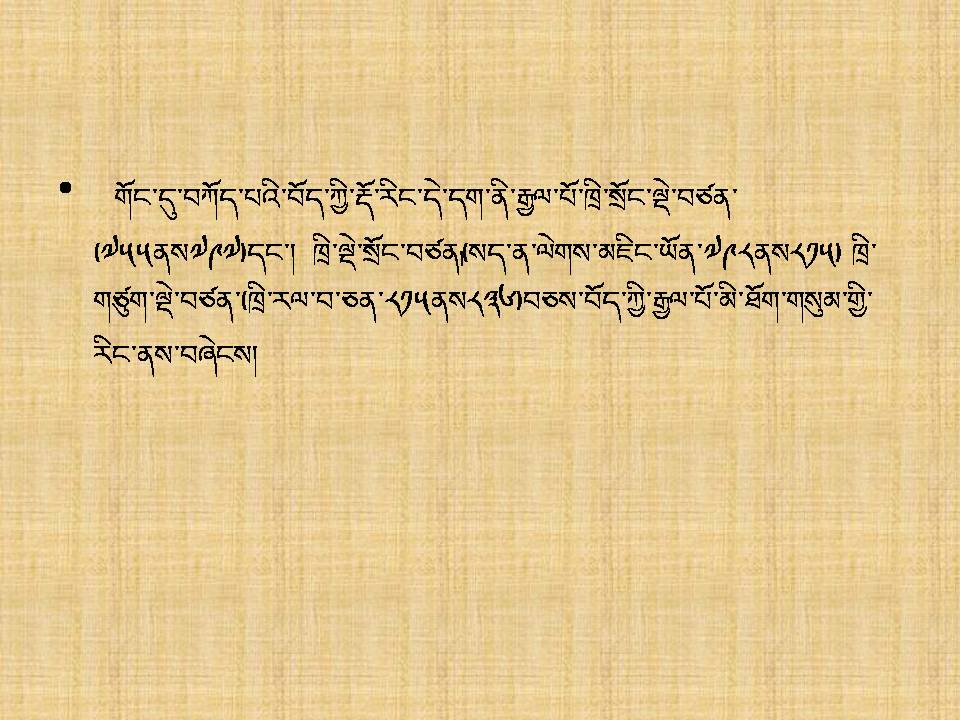 • གོང་དུ་བཀོད་པའི་བོད་ཀྱི་རྡོ་རིང་དེ་དག་ནི་རྒྱལ་པོ་ཁྲི་སྲོང་ལྡེ་བཙན་
(༧༥༥ནས༧༩༧)དང་། ཁྲི་ལྡེ་སྲོང་བཙན(སད་ན་ལེགས་མཇིང་ཡོན་༧༩༨ནས༨༡༥) ཁྲི་
གཙུག་ལྡེ་བཙན་(ཁྲི་རལ་བ་ཅན་༨༡༥ནས༨༣༦)བཅས་བོད་ཀྱི་རྒྱལ་པོ་མི་ཐོག་གསུམ་གྱི་
རིང་ནས་བཞེངས།